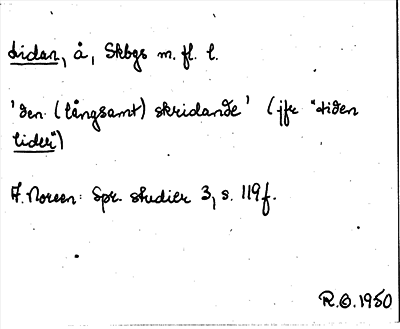 Lidan, å, Skbgs m. fl. l.
'den (långsamt) skridande' (jfr "tiden
lider")
A. Noreen: Spr. studier 3, s. 119f.
R.O. 1950